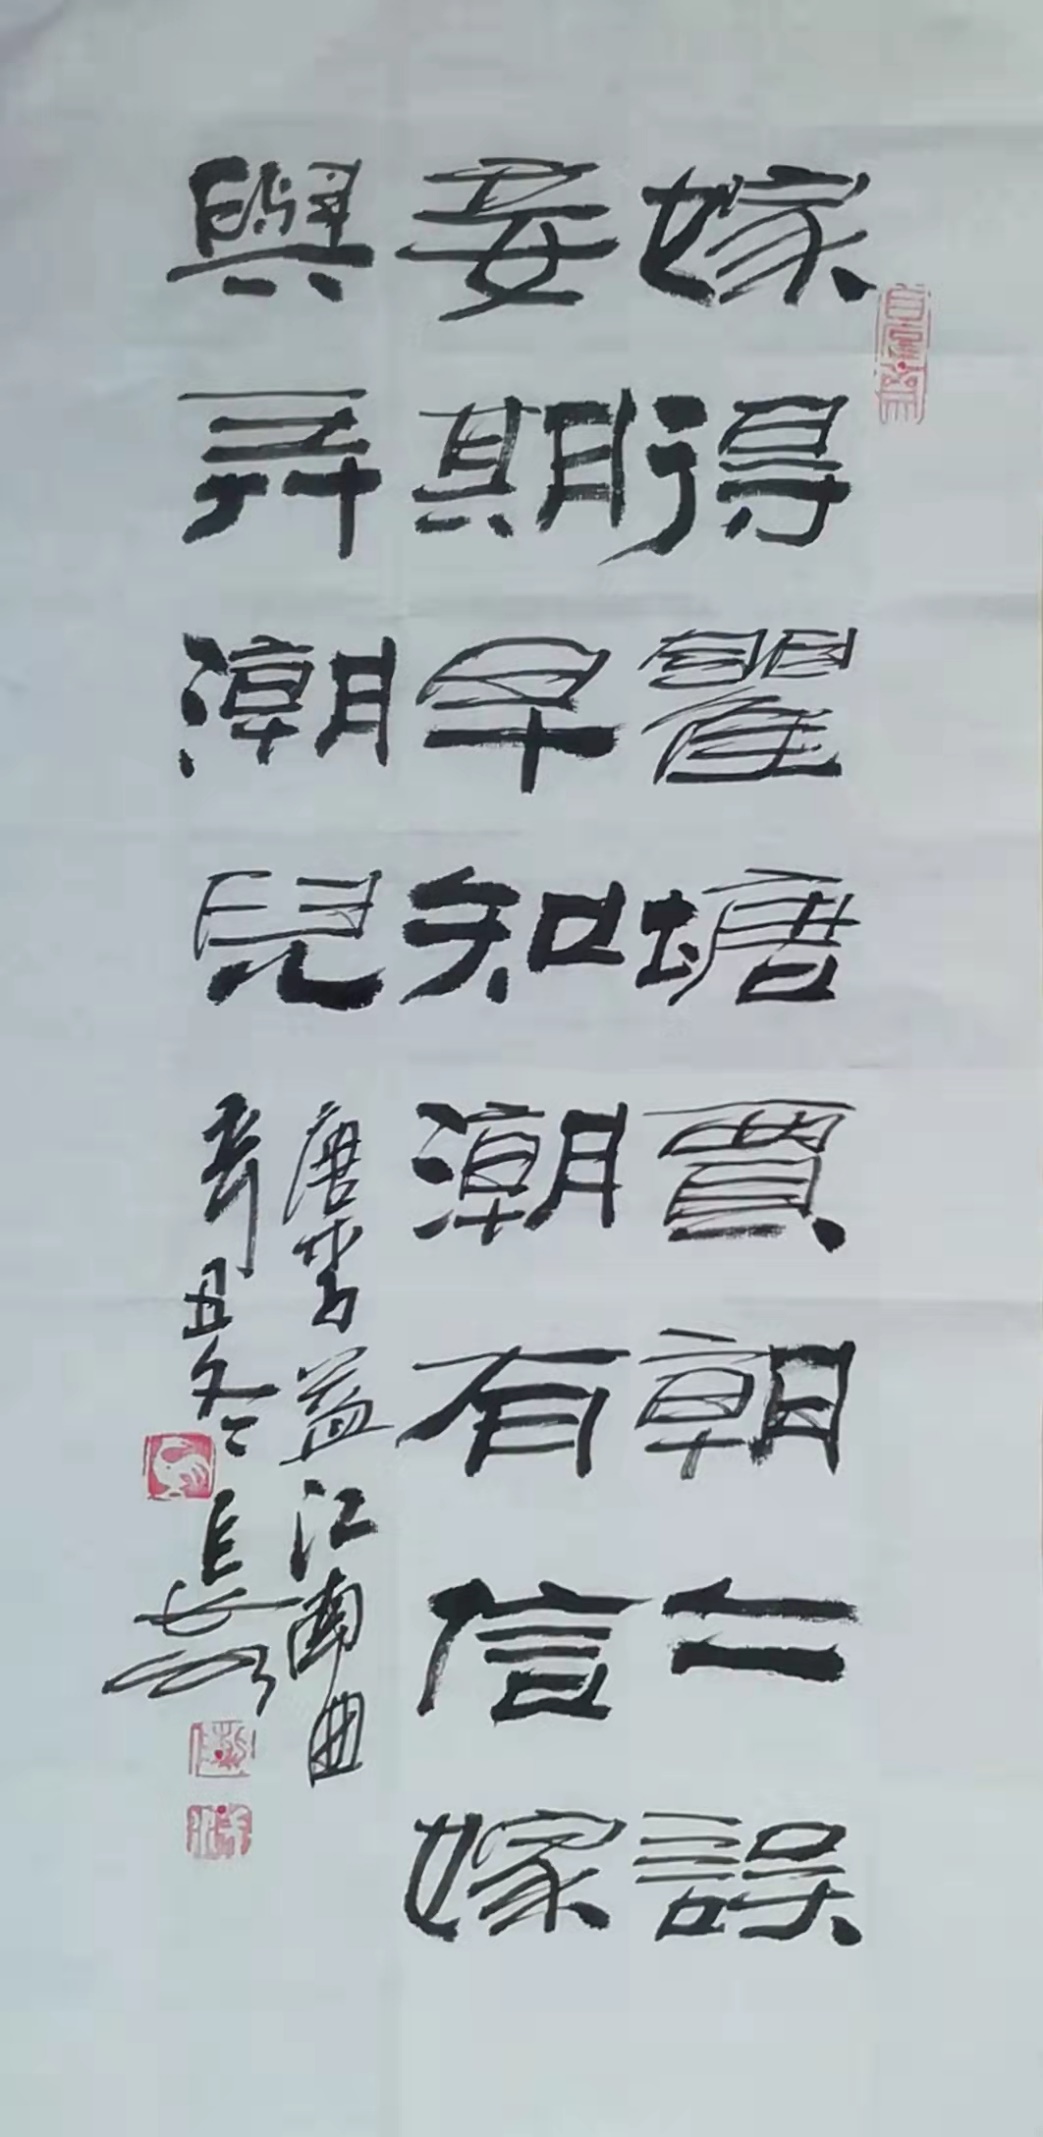 嫁得瞿塘賈朝二誤
妾期早知潮有信嫁
與弄潮兒
唐李益江南曲
辛丑冬長